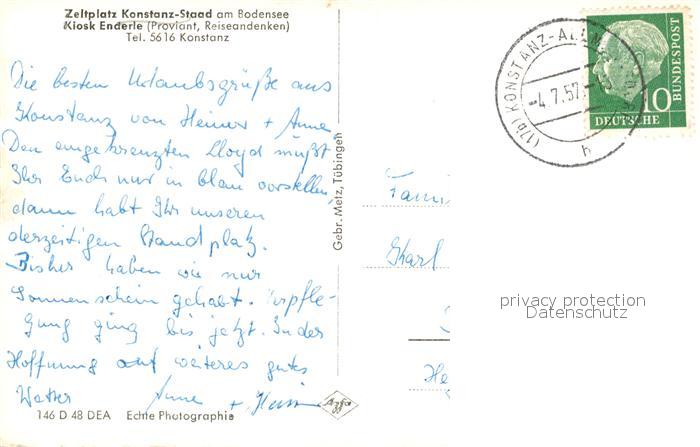 Zeltplatz Konstanz-Staad am Bodensee
Kiosk Enderle (Proviant, Reiseandenken)
Tel. 5616 Konstanz
Die besten Urlaubsgrüße aus
Konstanz von Heiner + Anne
Den eingekreuzten Lloyd müßt
Ihr Euch nur in blau vorstellen,
dann habt Ihr unseren
derzeitigen Standplatz.
Bisher haben wir nur
Sonnenschein gehabt. Verpfle-
gung ging bis jetzt. In der
Hoffnung auf weiteres gutes
Wetter Anne +
146 D 48 DEA Echte Photographie
Gebr. Metz, Tübingen
Agfa
(17b) KONSTANZ-ALLM
-4.7.57
h
10
DEUTSCHE
BUNDESPOST
Fami
Karl
He
privacy protection
Datenschutz